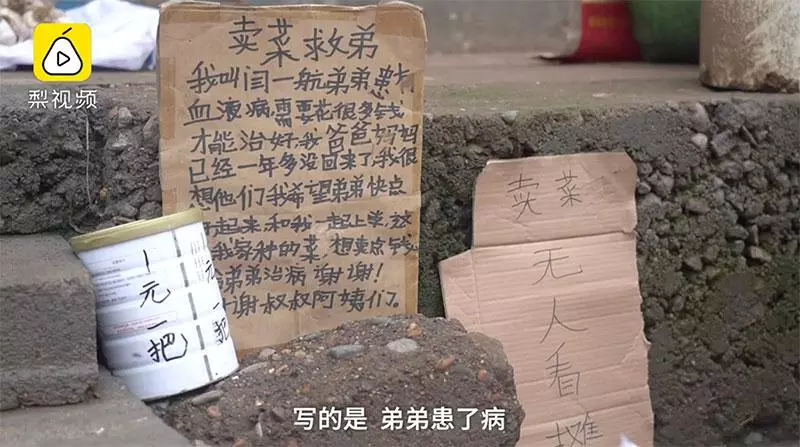 梨视频
卖菜救弟
我叫闫一航弟弟患
血液病需要花很多钱
才能治好,我爸爸妈妈
已经一年多没回来了,我很
想他们我希望弟弟快点
起来,和我一起上学,这
我家种的菜,想卖点钱
弟弟治病谢谢!
谢叔叔阿姨们。
1元一把
元一把
卖菜
无人看摊
写的是 弟弟患了病